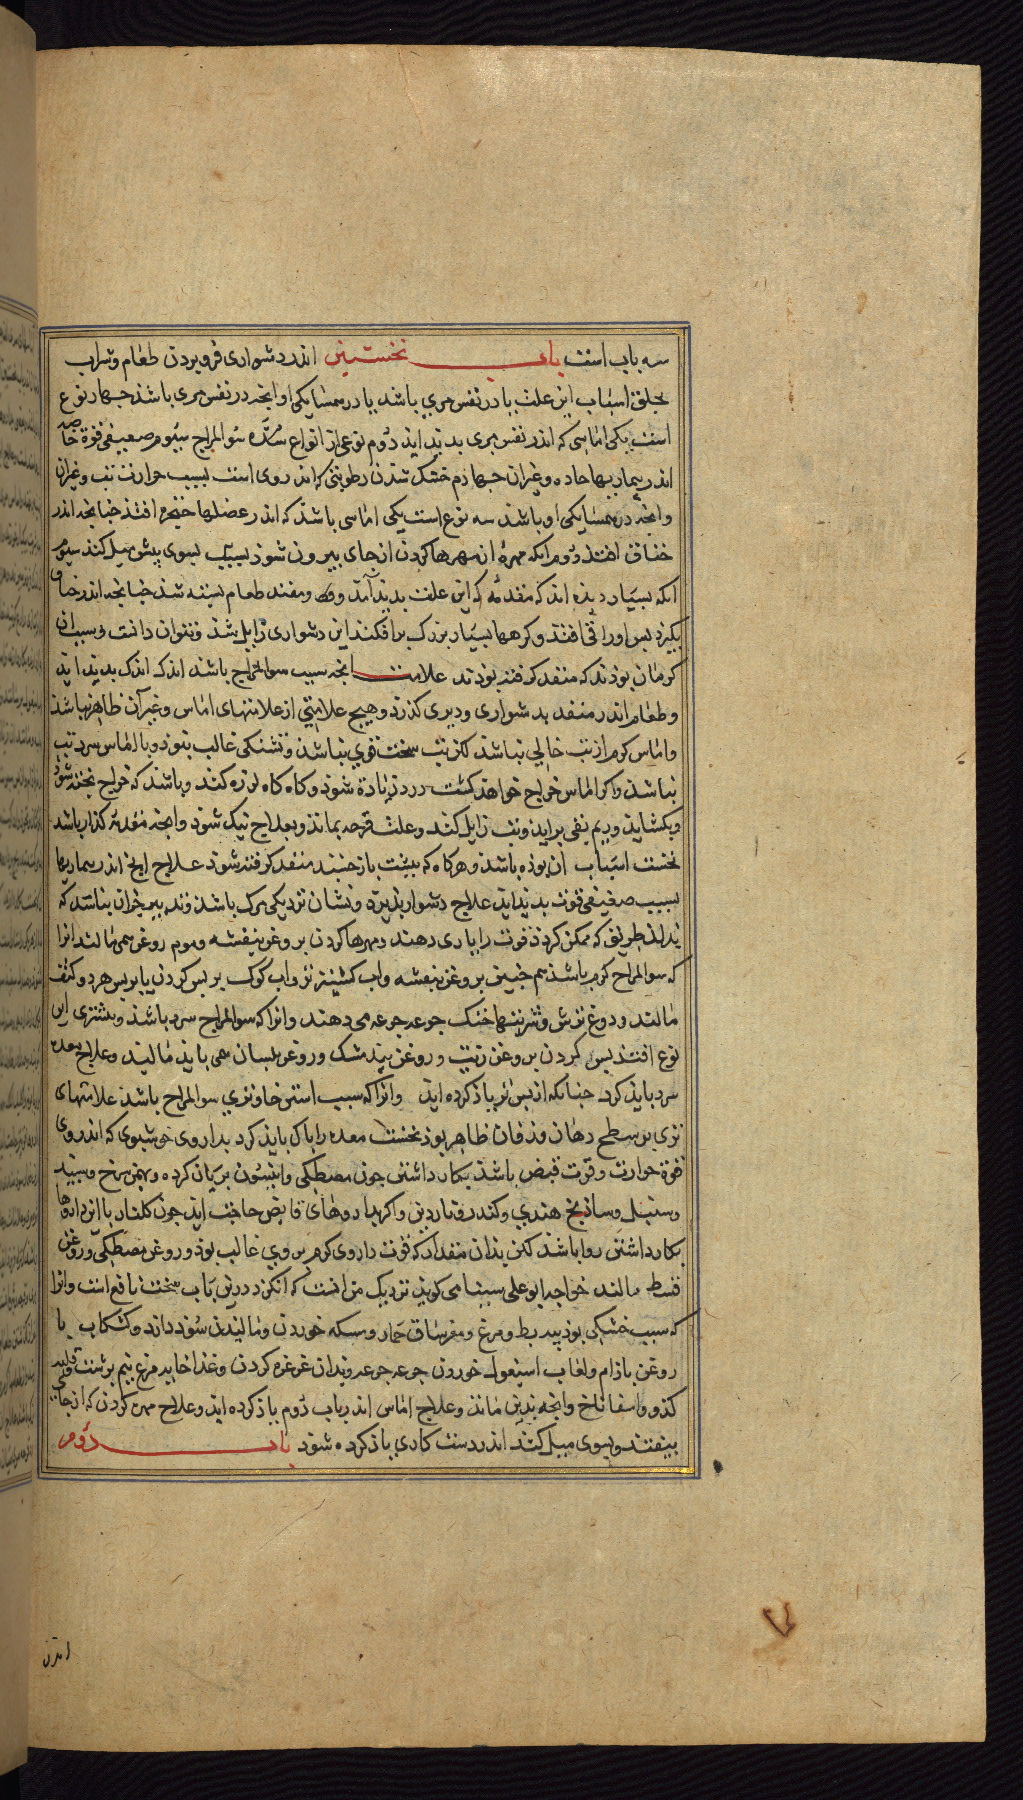 سه باب است باب نخستین اندر دشواری فرو بردن طعام و شراب
بحلق اسباب این علت یا در نفس مری باشد یا در همسایکی او انچه در نفس مری باشد جهار نوع
است یکی اماسی که اندر نفس مری بدید اید دوم نوعی از انواع سده سوالمزاج سیوم ضعیفی قوة خاصه
اندر بیماریها حاده و غیر ان جهارم خشک شدن رطوبتی که اندر وی است بسبب حرارت تب و غیر ان
و انچه در همسایکی او باشد سه نوع است یکی اماسی باشد که اندر عضلها حنجره افتد جنانجه اندر
خناق افتد دوم انکه مهرۀ از مهرها کردن از جای بیرون شود بسبب بسوی بیش میل کند سیوم
انکه بسیار دیده اند که مقدمۀ که این علت بدید آمد و منفذ طعام بسته شد جنانجه اندر خناق
بکیرد بس او را قی افتد و کرمها بسیار بزرک برافکند این دشواری زایل شد و بتوان دانست و سبب ان
کرمان بودند که منفذ کرفته بودند علامت انچه سبب سوالمزاج باشد اندک اندک بدید اید
و طعام اندر منفذ بدشواری و دیری کذرد و هیج علامتی از علامتهای اماس و غیر آن ظاهر نباشد
و اماس کرم از تب خالی نباشد لکن تب سخت قوی نباشد و تشنکی غالب نبود و با اماس سرد تب
نباشد و اکر اماس خراج خواهد کشت درد زیادة شود و کاه کاه لرزه کند و باشد که خراج بخته شود
و بکشاید و ریم بقی براید و تب زایل کند و علت قرحه بماند و بعلاج نیک شود و انچه مقدمه کذار باشد
نخست اسباب ان بوده باشد و هرکاه که ببشت باز خسبد منفذ کرفته شود علاج انچ اندر بیماریها
بسبب ضعیفی قوت بدید اید علاج دشوار بذیرد و نشان نزدیکی مرک باشد و تدبیر جز ان نباشد که
بدان طریق که ممکن کردد قوت را یاری دهند و مهرها کردن بروغن بنفشه و موم روغن همی مالند انرا
که سوالمزاج کرم باشد هم جنین بروغن بنفشه و اب کشنیز تر و اب کوک بر بس کردن یا بر بس هر دو کتف
مالند و دوغ ترش و شربتها خنک جرعه جرعه می دهند و انرا که سوالمزاج سرد باشد و بیشتری این
نوع افتد بس کردن بروغن زیت و روغن بیدمشک و روغن بلسان همی باید مالید و علاج معده
سرد باید کرد جنانکه از بس تر یاذ کرده اید و انرا که سبب استرخا و تری سوالمزاج باشد علامتهای
تری بر سطح دهان و زفان ظاهر بود نخست معده را باک باید کرد بداروی خوشبوی که اندر وی
قوة حرارت و قوت قبض باشد بکار داشتن جون مصطکی و انیسون بریان کرده و بهمن سرخ و سبید
و سنبل و ساذج هندی و کندر و ناردین و اکر بداروهای قابض حاجت اید جون کلنار با این داروها
بکار داشتن روا باشد لکن بدان مقدار که قوت داروی کرم بر وی غالب بود و روغن مصطکی و روغن
قسط مالند خواجه ابو علی سینا می کوید نزدیک من انست که انکزد درین باب سخت نافع است و انرا
که سبب خشکی بود بیه بط و مرغ و مغز ساق حمار و مسکه خوردن و مالیدن سود دارد و کشکاب با
روغن بادام و لعاب اسبغول خوردن جرعه جرعه و بدان غرغره کردن و غذا خایه مرغ نیم برشت و قلیه
کدو و اسفاناخ و انچه بدین ماند و علاج اماس اندر باب دوم یاذ کرده اید و علاج مهره کردن که از جای
بیفتد و بسوی میل کند اندر دست کاری یاذ کرده شود باب دوم